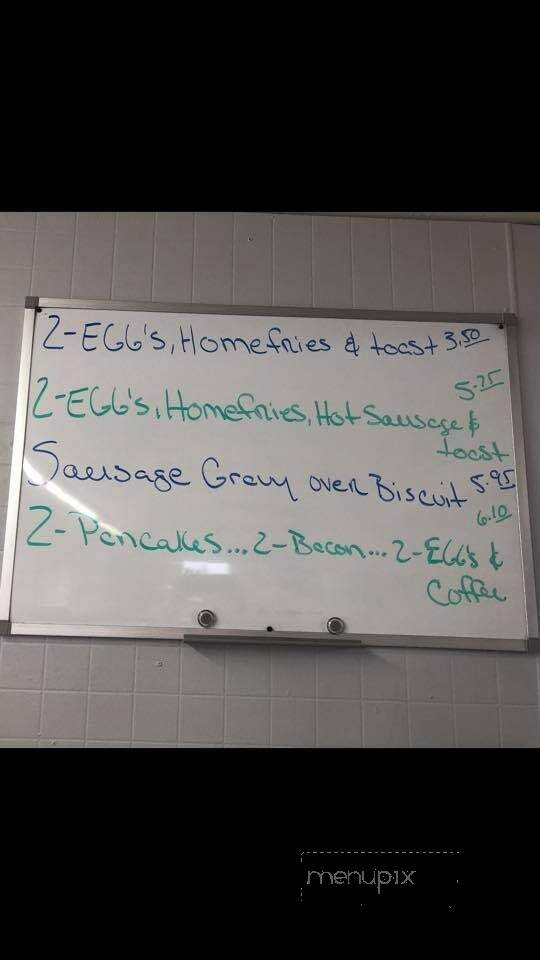 2-EGG's, Homefries & toast 3.50
5.25
2-EGG's, Homefries, Hot Sausage &
toast
Sausage Gravy over Biscuit 5.95
6.10
2-Pancakes... 2-Bacon... 2-EGG's &
Coffee
menupix